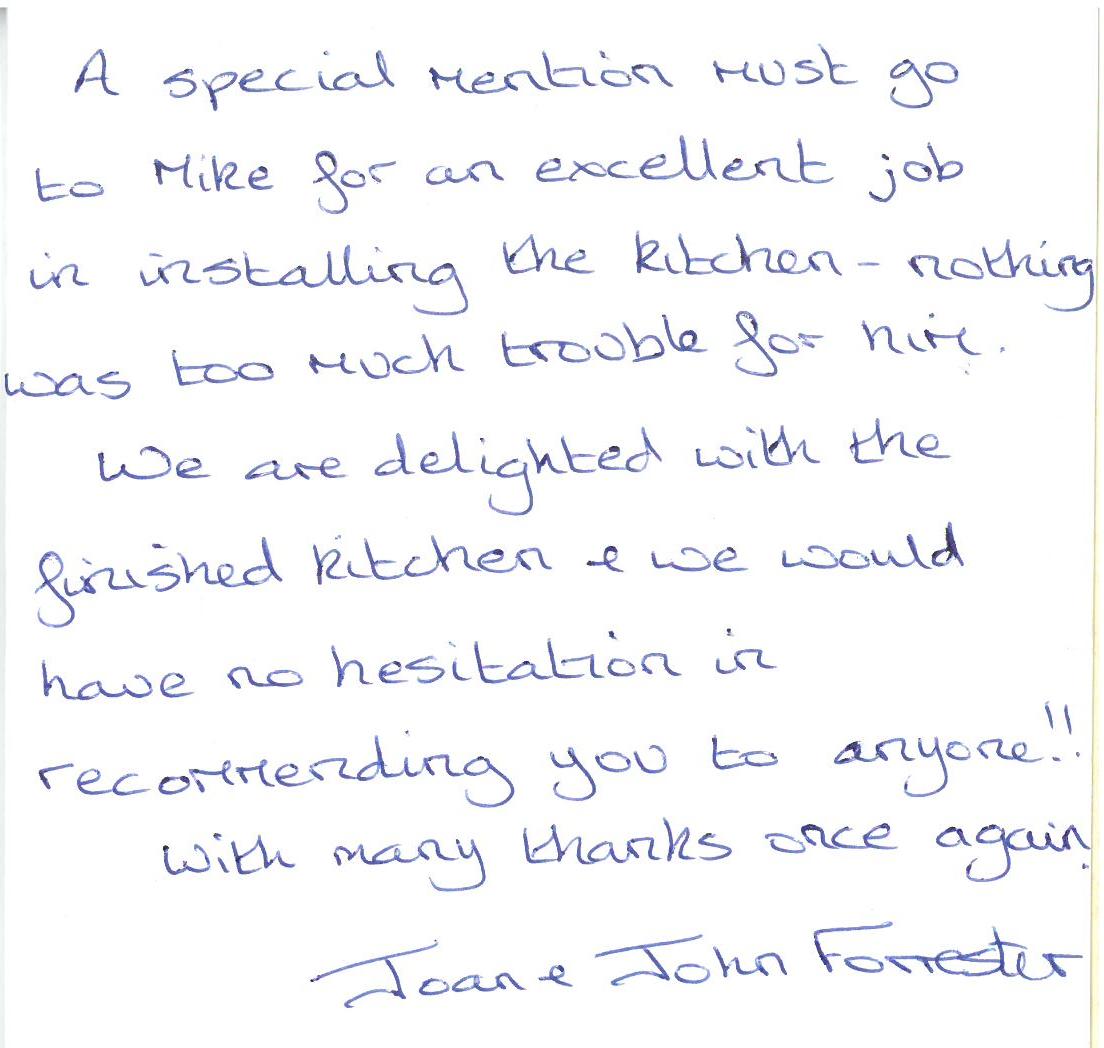 A special mention must go
to Mike for an excellent job
in installing the kitchen - nothing
was too much trouble for him.
We are delighted with the
finished kitchen & we would
have no hesitation in
recommending you to anyone!!
With many thanks once again.
Joan & John Forrester